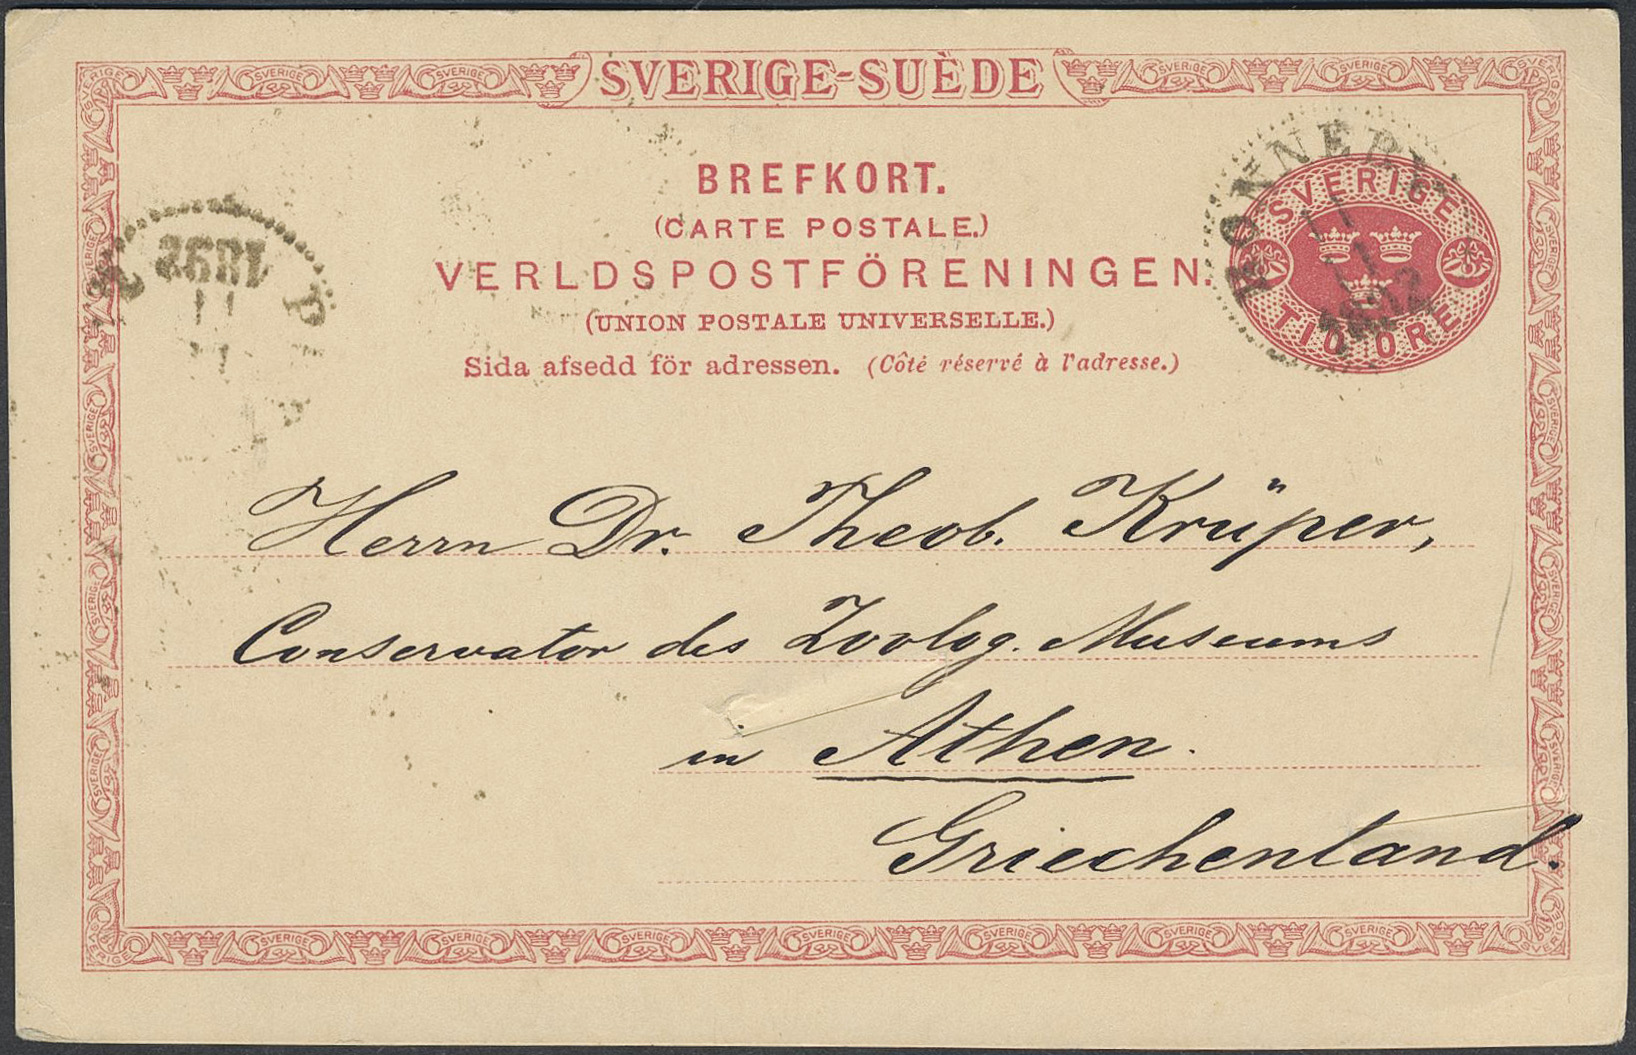 SVERIGE-SUÈDE
BREFKORT.
(CARTE POSTALE.)
VERLDSPOSTFÖRENINGEN.
(UNION POSTALE UNIVERSELLE.)
Sida afsedd för adressen. (Côté réservé à l'adresse.)
SVERIGE
TIO ÖRE
RONNEBY
1892
Herrn Dr. Theob. Krüper,
Conservator des Zoolog. Museums
in Athen.
Griechenland.